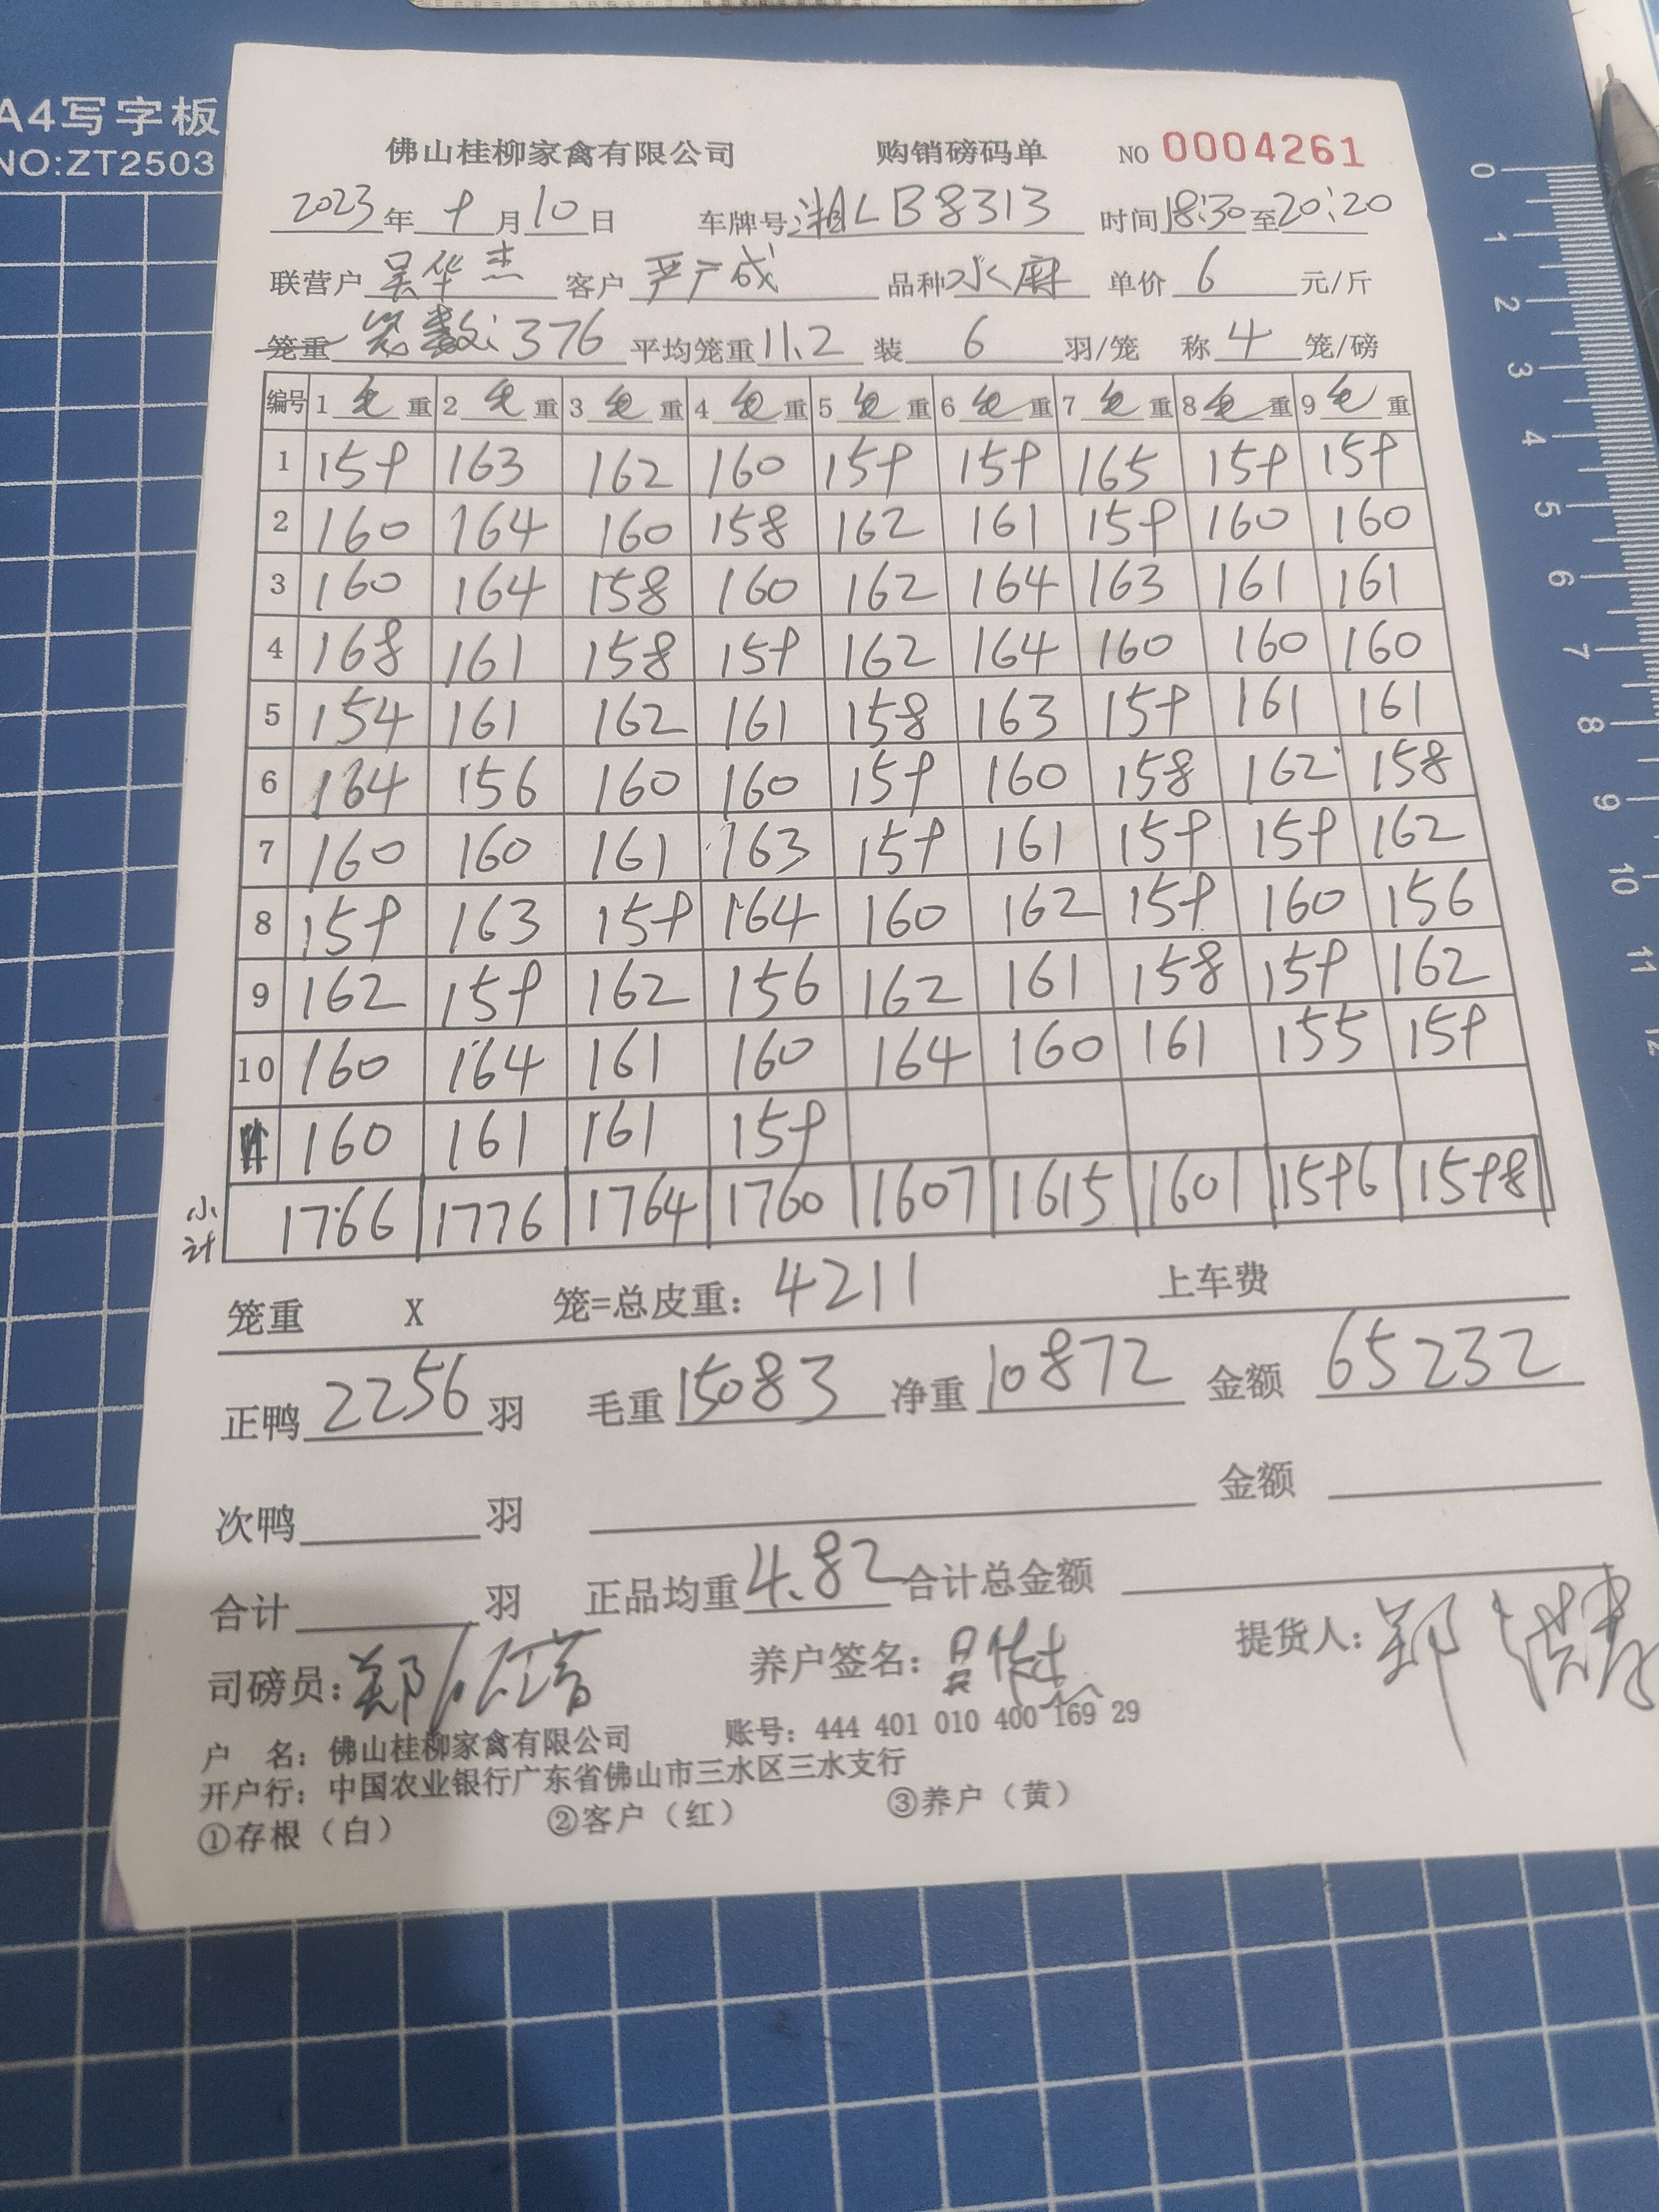 A4写字板
NO:ZT2503
佛山桂柳家禽有限公司 购销磅码单 NO 0004261
2023年 9月10日 车牌号 湘LB8313 时间18:30至20:20
联营户 吴华杰 客户 严广成 品种 水麻 单价 6 元/斤
笼重 笼数:376 平均笼重11.2 装 6 羽/笼 称 4 笼/磅
编号 1 毛 重 2 毛 重 3 毛 重 4 毛 重 5 毛 重 6 毛 重 7 毛 重 8 毛 重 9 毛 重
1 159 163 162 160 159 159 165 159 159
2 160 164 160 158 162 161 159 160 160
3 160 164 158 160 162 164 163 161 161
4 168 161 158 159 162 164 160 160 160
5 154 161 162 161 158 163 159 161 161
6 164 156 160 160 159 160 158 162 158
7 160 160 161 163 159 161 159 159 162
8 159 163 159 164 160 162 159 160 156
9 162 159 162 156 162 161 158 159 162
10 160 164 161 160 164 160 161 155 159
160 161 161 159
小计 1766 1776 1764 1760 1607 1615 1601 1596 1598
笼重 X 笼=总皮重: 4211 上车费
正鸭 2256 羽 毛重 15083 净重 10872 金额 65232
次鸭 羽 金额
合计 羽 正品均重 4.82 合计总金额
司磅员: 郑 养户签名: 吴华杰 提货人: 郑
户 名: 佛山桂柳家禽有限公司 账号: 444 401 010 400 169 29
开户行: 中国农业银行广东省佛山市三水区三水支行
①存根(白) ②客户(红) ③养户(黄)
0
1
2
3
4
5
6
7
8
9
10
11
12